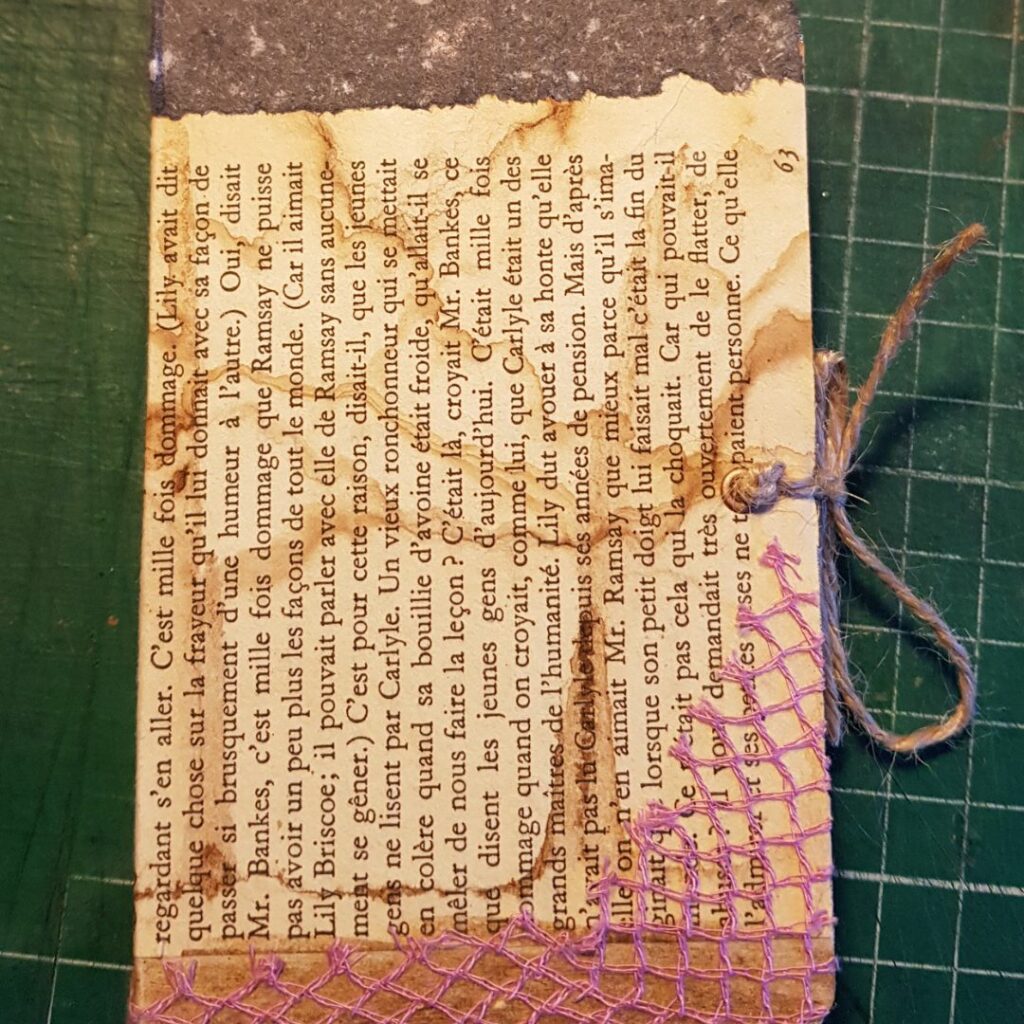 regardant s'en aller. C'est mille fois dommage. (Lily avait dit
quelque chose sur la frayeur qu'il lui donnait avec sa façon de
passer si brusquement d'une humeur à l'autre.) Oui, disait
Mr. Bankes, c'est mille fois dommage que Ramsay ne puisse
pas avoir un peu plus les façons de tout le monde. (Car il aimait
Lily Briscoe; il pouvait parler avec elle de Ramsay sans aucune-
ment se gêner.) C'est pour cette raison, disait-il, que les jeunes
gens ne lisent par Carlyle. Un vieux ronchonneur qui se mettait
en colère quand sa bouillie d'avoine était froide, qu'allait-il se
mêler de nous faire la leçon? C'était là, croyait Mr. Bankes, ce
que disent les jeunes gens d'aujourd'hui. C'était mille fois
ommage quand on croyait, comme lui, que Carlyle était un des
grands maîtres de l'humanité. Lily dut avouer à sa honte qu'elle
n'avait pas lu Carlyle depuis ses années de pension. Mais d'après
elle on n'en aimait Mr. Ramsay que mieux parce qu'il s'ima-
ginait lorsque son petit doigt lui faisait mal c'était la fin du
Ce n'était pas cela qui la choquait. Car qui pouvait-il
il vous demandait très ouvertement de le flatter, de
l'admirer et ses ses ne paient personne. Ce qu'elle
63